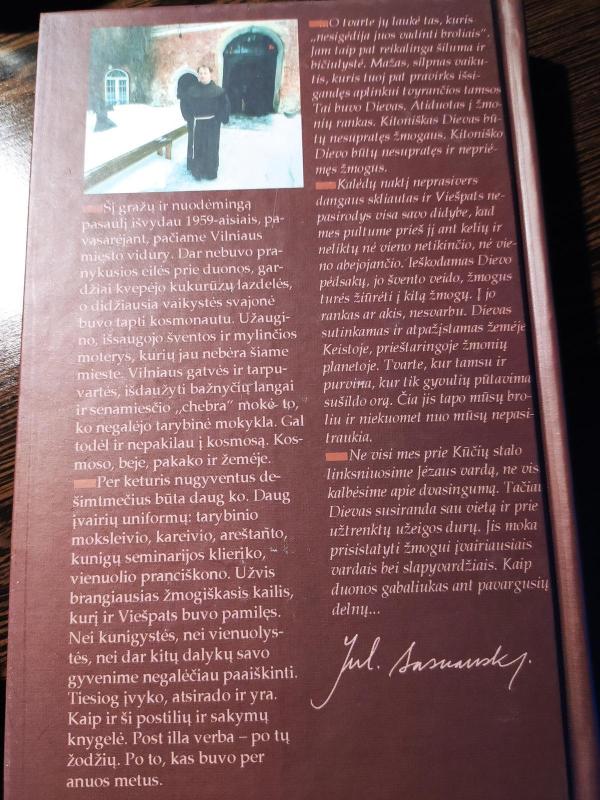 Šį gražų ir nuodėmingą
pasaulį išvydau 1959-aisiais, pa-
vasarėjant, pačiame Vilniaus
miesto vidury. Dar nebuvo pra-
nykusios eilės prie duonos, gar-
džiai kvepėjo kukurūzų lazdelės,
o didžiausia vaikystės svajonė
buvo tapti kosmonautu. Užaugi-
no, išsaugojo šventos ir mylinčios
moterys, kurių jau nebėra šiame
mieste. Vilniaus gatvės ir tarpu-
vartės, išdaužyti bažnyčių langai
ir senamiesčio „chebra“ mokė to,
ko negalėjo tarybinė mokykla. Gal
todėl ir nepakilau į kosmosą. Kos-
moso, beje, pakako ir žemėje.
Per keturis nugyventus de-
šimtmečius būta daug ko. Daug
įvairių uniformų: tarybinio
moksleivio, kareivio, areštanto,
kunigų seminarijos klieriko,
vienuolio pranciškono. Užvis
brangiausias žmogiškasis kailis,
kurį ir Viešpats buvo pamilęs.
Nei kunigystės, nei vienuolys-
tės, nei dar kitų dalykų savo
gyvenime negalėčiau paaiškinti.
Tiesiog įvyko, atsirado ir yra.
Kaip ir ši postilių ir sakymų
knygelė. Post illa verba – po tų
žodžių. Po to, kas buvo per
anuos metus.
O tvarte jų laukė tas, kuris
„nesigėdija juos vadinti broliais“.
Jam taip pat reikalinga šiluma ir
bičiulystė. Mažas, silpnas vaiku-
tis, kuris tuoj pat pravirks išsi-
gandęs aplinkui tvyrančios tamsos
Tai buvo Dievas. Atiduotas į žmo-
nių rankas. Kitoniškas Dievas bū-
tų nesupratęs žmogaus. Kitoniško
Dievo būtų nesupratęs ir neprié-
męs žmogus.
Kalėdų naktį neprasivers
dangaus skliautas ir Viešpats ne-
pasirodys visa savo didybe, kad
mes pultume prieš jį ant kelių ir
neliktų nė vieno netikinčio, nė vie-
no abejojančio. Ieškodamas Dievo
pėdsakų, jo švento veido, žmogus
turės žiūrėti į kitą žmogų. Į jo
rankas ar akis, nesvarbu. Dievas
sutinkamas ir atpažįstamas žemėje
Keistoje, prieštaringoje žmonių
planetoje. Tvarte, kur tamsu ir
purvina, kur tik gyvulių pūtavima
sušildo orą. Čia jis tapo mūsų bro-
liu ir niekuomet nuo mūsų nepasi-
traukia.
Ne visi mes prie Kūčių stalo
linksniuosime Jėzaus vardą, ne vis
kalbėsime apie dvasingumą. Tačiau
Dievas susiranda sau vietą ir prie
užtrenktų užeigos durų. Jis moka
prisistatyti žmogui įvairiausiais
vardais bei slapyvardžiais. Kaip
duonos gabaliukas ant pavargusių
delnų...
Jul. Sasnausk.